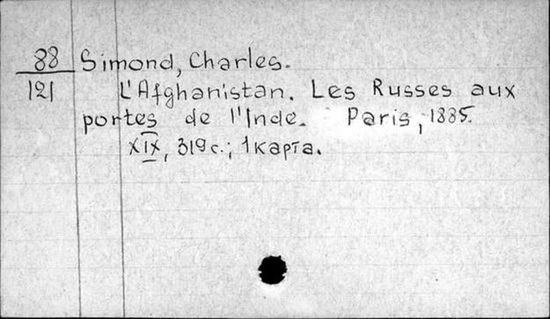 88 Simond, Charles.
121 L'Afghanistan. Les Russes aux
portes de l'Inde. Paris, 1885.
XIX, 319 с.; 1 карта.